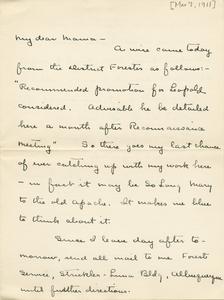 [Mar 7, 1911]
My dear Mama -
A wire came today
from the District Forester as follows:-
"Recommended promotion for Leopold
considered. Advisable he be detailed
here a month after Reconnaissance
Meeting" So there goes my last chance
of ever catching up with my work here
- in fact it may be So Long Mary
to the old Apache. It makes me blue
to think about it.
Since I leave day after to-
morrow, send all mail to me Forest
Service, Strickler-Luna Bldg, Albuquerque
until further directions.